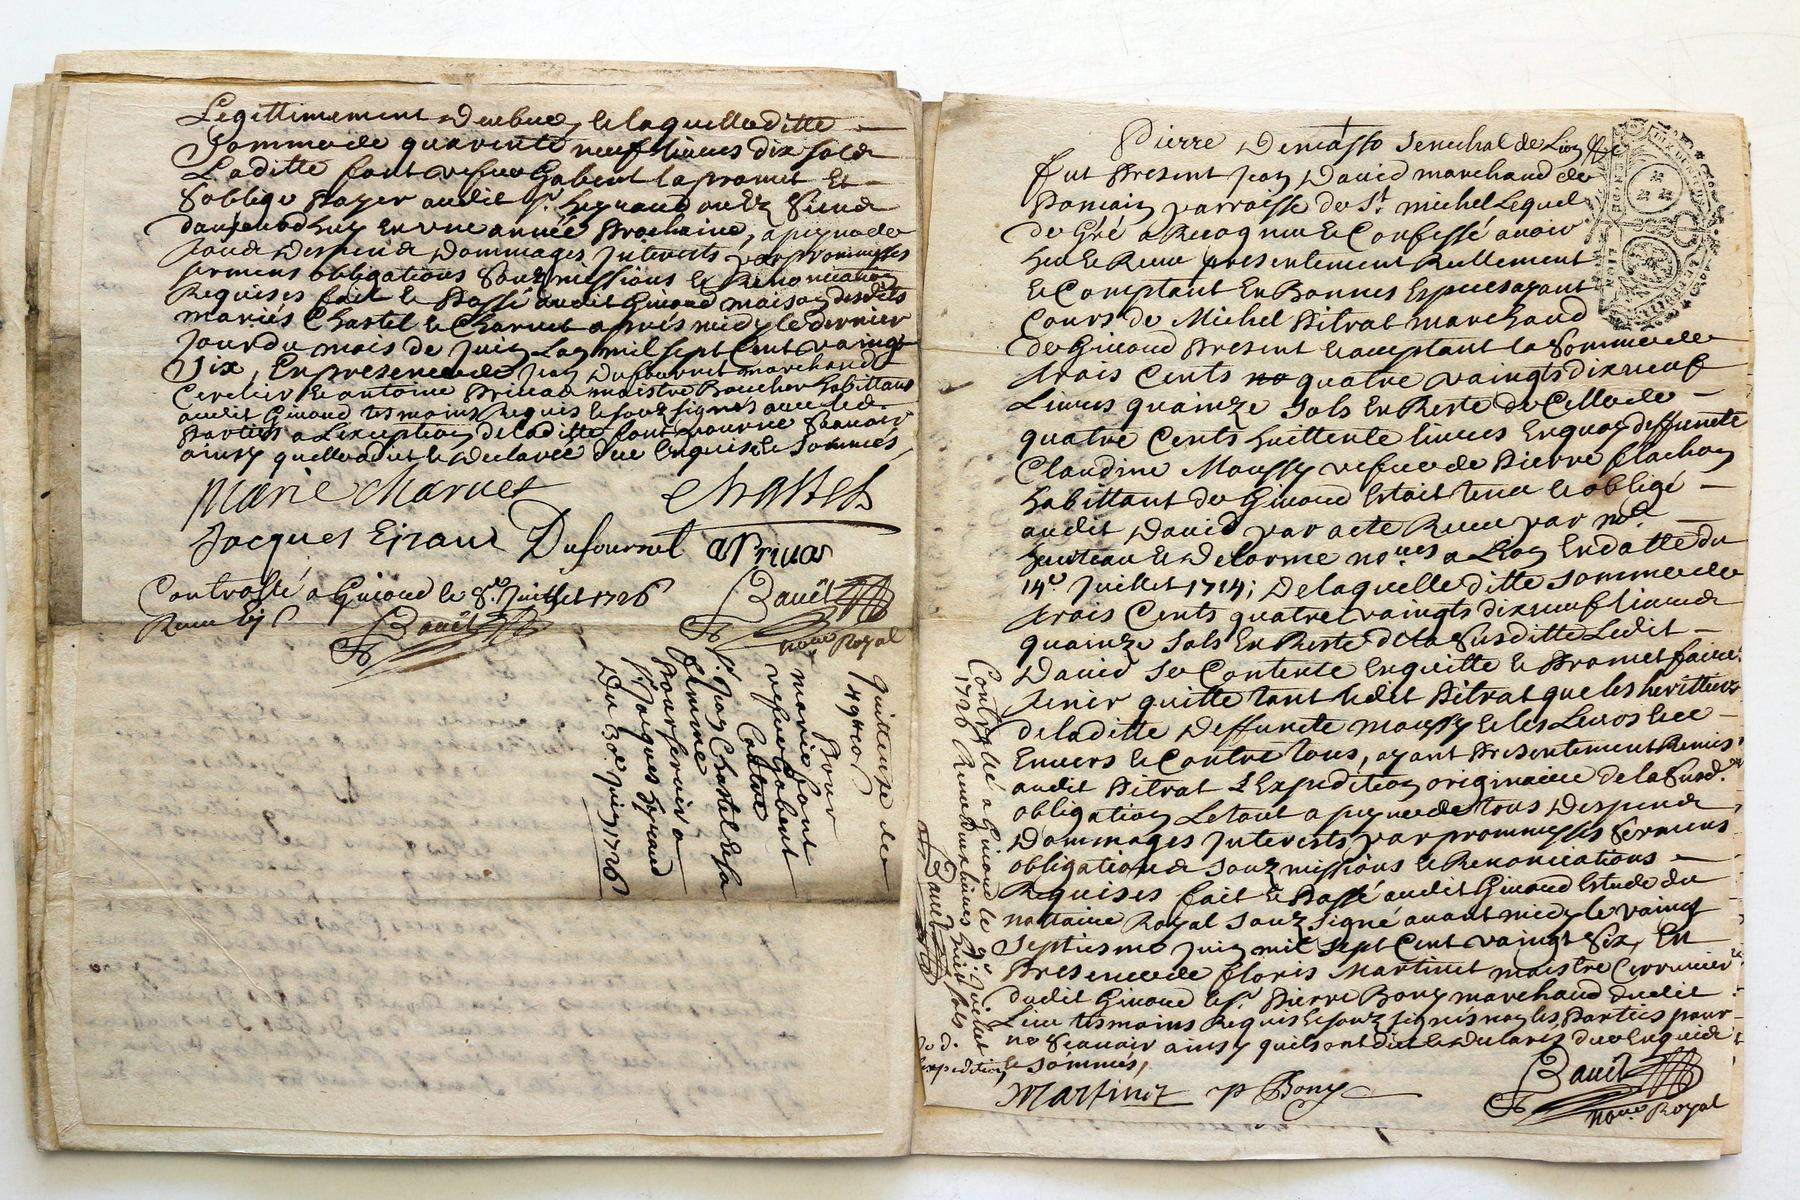 Legittimement deubue, de laquelle ditte
Somme de quarente neuf livres dix sols
Laditte font vefve Gabent la promet Et
S'oblige payer audit Sr.
daujourdhuy En une année Prochaine, a peyne de
tous Despend Dommages Interests par prommesses
sermens obligations Souzmissions et Renonciations
Requises fait et Passé audit Givord maison desdits
mariés Chastel et Charvet après midy le dernier
Jour du mois de Juin Lan mil sept Cent vaingt
Six, En presence de Jean Dufournel marchand
Cerclier et antoine Privad maistre Boucher habittans
audit Givord tesmoins Requis et souzsignés avec les
Parties a L'exception de laditte font pour ne Scavoir
ainsy quelle a dit et Declarée due Enquise et Sommés,
Marie Charvet Chastel
Jacques Eiraud Dufournel a Privas
Controllé a Givord le 8e. Juillet 1726
Receu
Bauët
Bauët
nore. Royal
Quittance de
49# 10s
Pour
marie font
vefve Gabent
Contre
Sr. Jean Chastel & sa
femme
Pour servir a
Sr. Jacques
Du 30e. Juin 1726
Pierre Demasso Senechal de Lion &c
fut Present Jean David marchand de
parroisse de St. michel Lequel
de Gré a Recogneu et Confessé avoir
heu et Receu presentement Reellement
et Comptant En Bonnes Especes ayant
Cours de Michel Pitrat marchand
de Givord Present et acceptant la Somme de
trois Cents quatre vaingts dix neuf
Livres quainze Sols En Reste de Celle de
quatre Cents huittente livres En quoy deffuncte
Claudine Moussy vefve de Pierre flachon
habittant de Givord Estait tenue et obligé
audit David par acte Receu par
et Delorme nores a Lion En datte du
14e. Juillet 1714; De laquelle ditte somme de
trois Cents quatre vaingts dix neuf livres
quainze Sols En Reste de la Susditte Ledit
David Se Contente En quitte et Promet faire
tenir quitte tant ledit Pitrat que les heritiers
de laditte Deffuncte Moussy et les Leurs
Envers et Contre tous, ayant Presentement Remis
audit Pitrat L'Expedition originaire de la Susd.
obligation Le tout a peyne de tous Despend
Dommages Interests par prommesses Sermens
obligations Souzmissions et Renonciations
Requises fait et Passé audit Givord Estude du
nottaire Royal Souz Signé avant midy le vaingt
Septiesme Juin mil Sept Cent vaingt Six, En
Presence de floris Martinet maistre Cerrurier
dudit Givord et Sr. Pierre Bony marchand dudit
Lieu tesmoins Requis et souz signés non les Parties pour
ne Scavoir ainsy quils ont dit et declarés de ce Enquis
et Sommés,
Martinet P Bony
Bauët
nore. Royal
Controllé a Givord le 9e. Juillet
1726 Receu Sols
Bauët
expedition